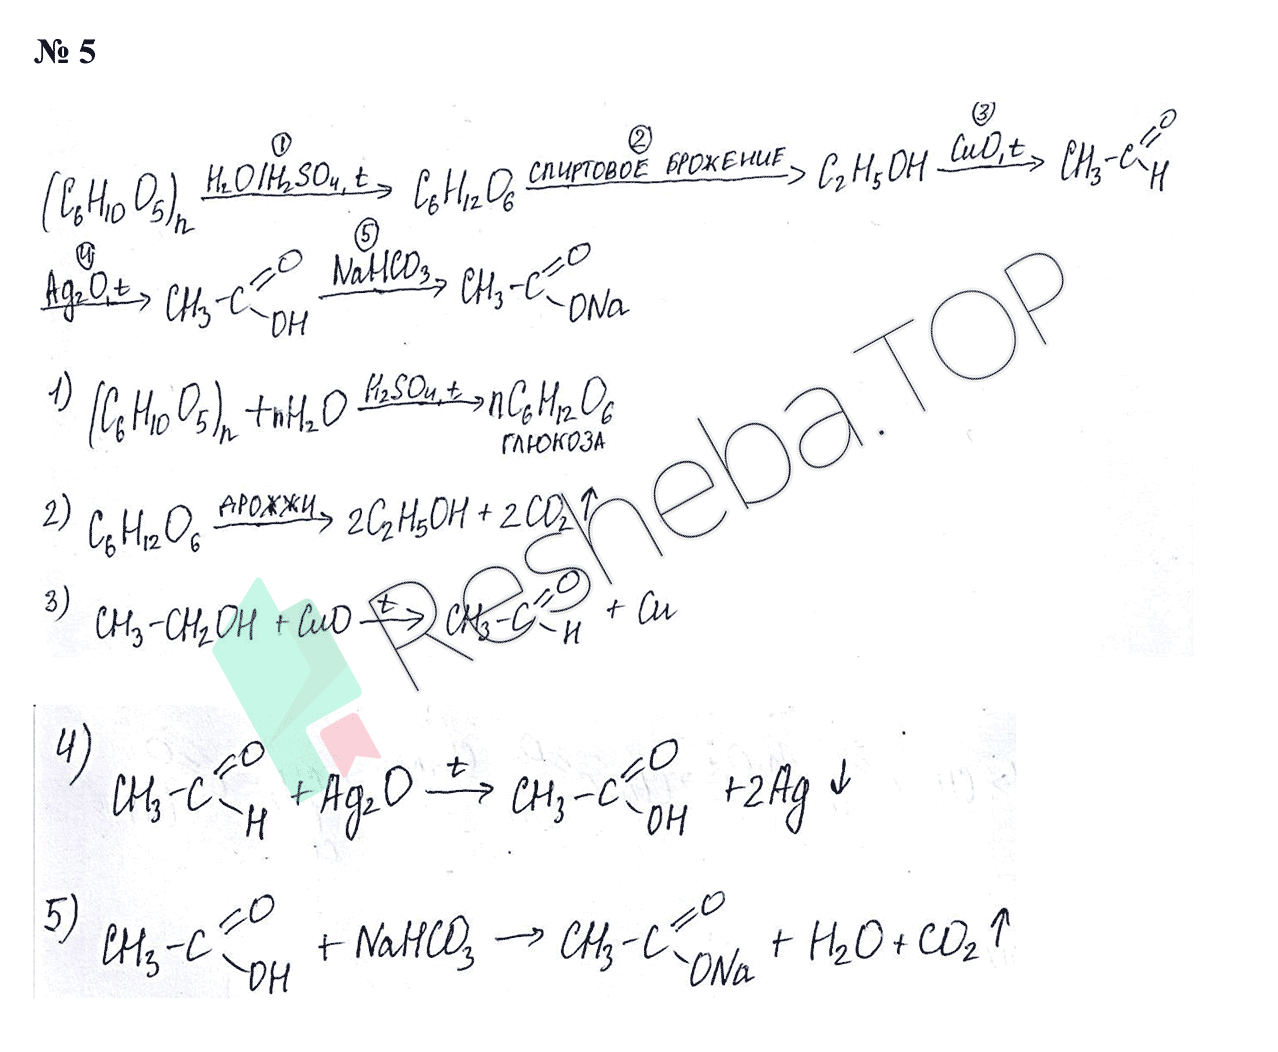 № 5
(C₆H₁₀O₅)ₙ —①H₂O/H₂SO₄, t→ C₆H₁₂O₆ —②СПИРТОВОЕ БРОЖЕНИЕ→ C₂H₅OH —③CuO, t→ CH₃-C(=O)-H
—④Ag₂O, t→ CH₃-C(=O)-OH —⑤NaHCO₃→ CH₃-C(=O)-ONa
1) (C₆H₁₀O₅)ₙ + nH₂O —H₂SO₄, t→ nC₆H₁₂O₆
ГЛЮКОЗА
2) C₆H₁₂O₆ —ДРОЖЖИ→ 2C₂H₅OH + 2CO₂↑
3) CH₃-CH₂OH + CuO —t→ CH₃-C(=O)-H + Cu
4) CH₃-C(=O)-H + Ag₂O —t→ CH₃-C(=O)-OH + 2Ag↓
5) CH₃-C(=O)-OH + NaHCO₃ → CH₃-C(=O)-ONa + H₂O + CO₂↑
Resheba.TOP